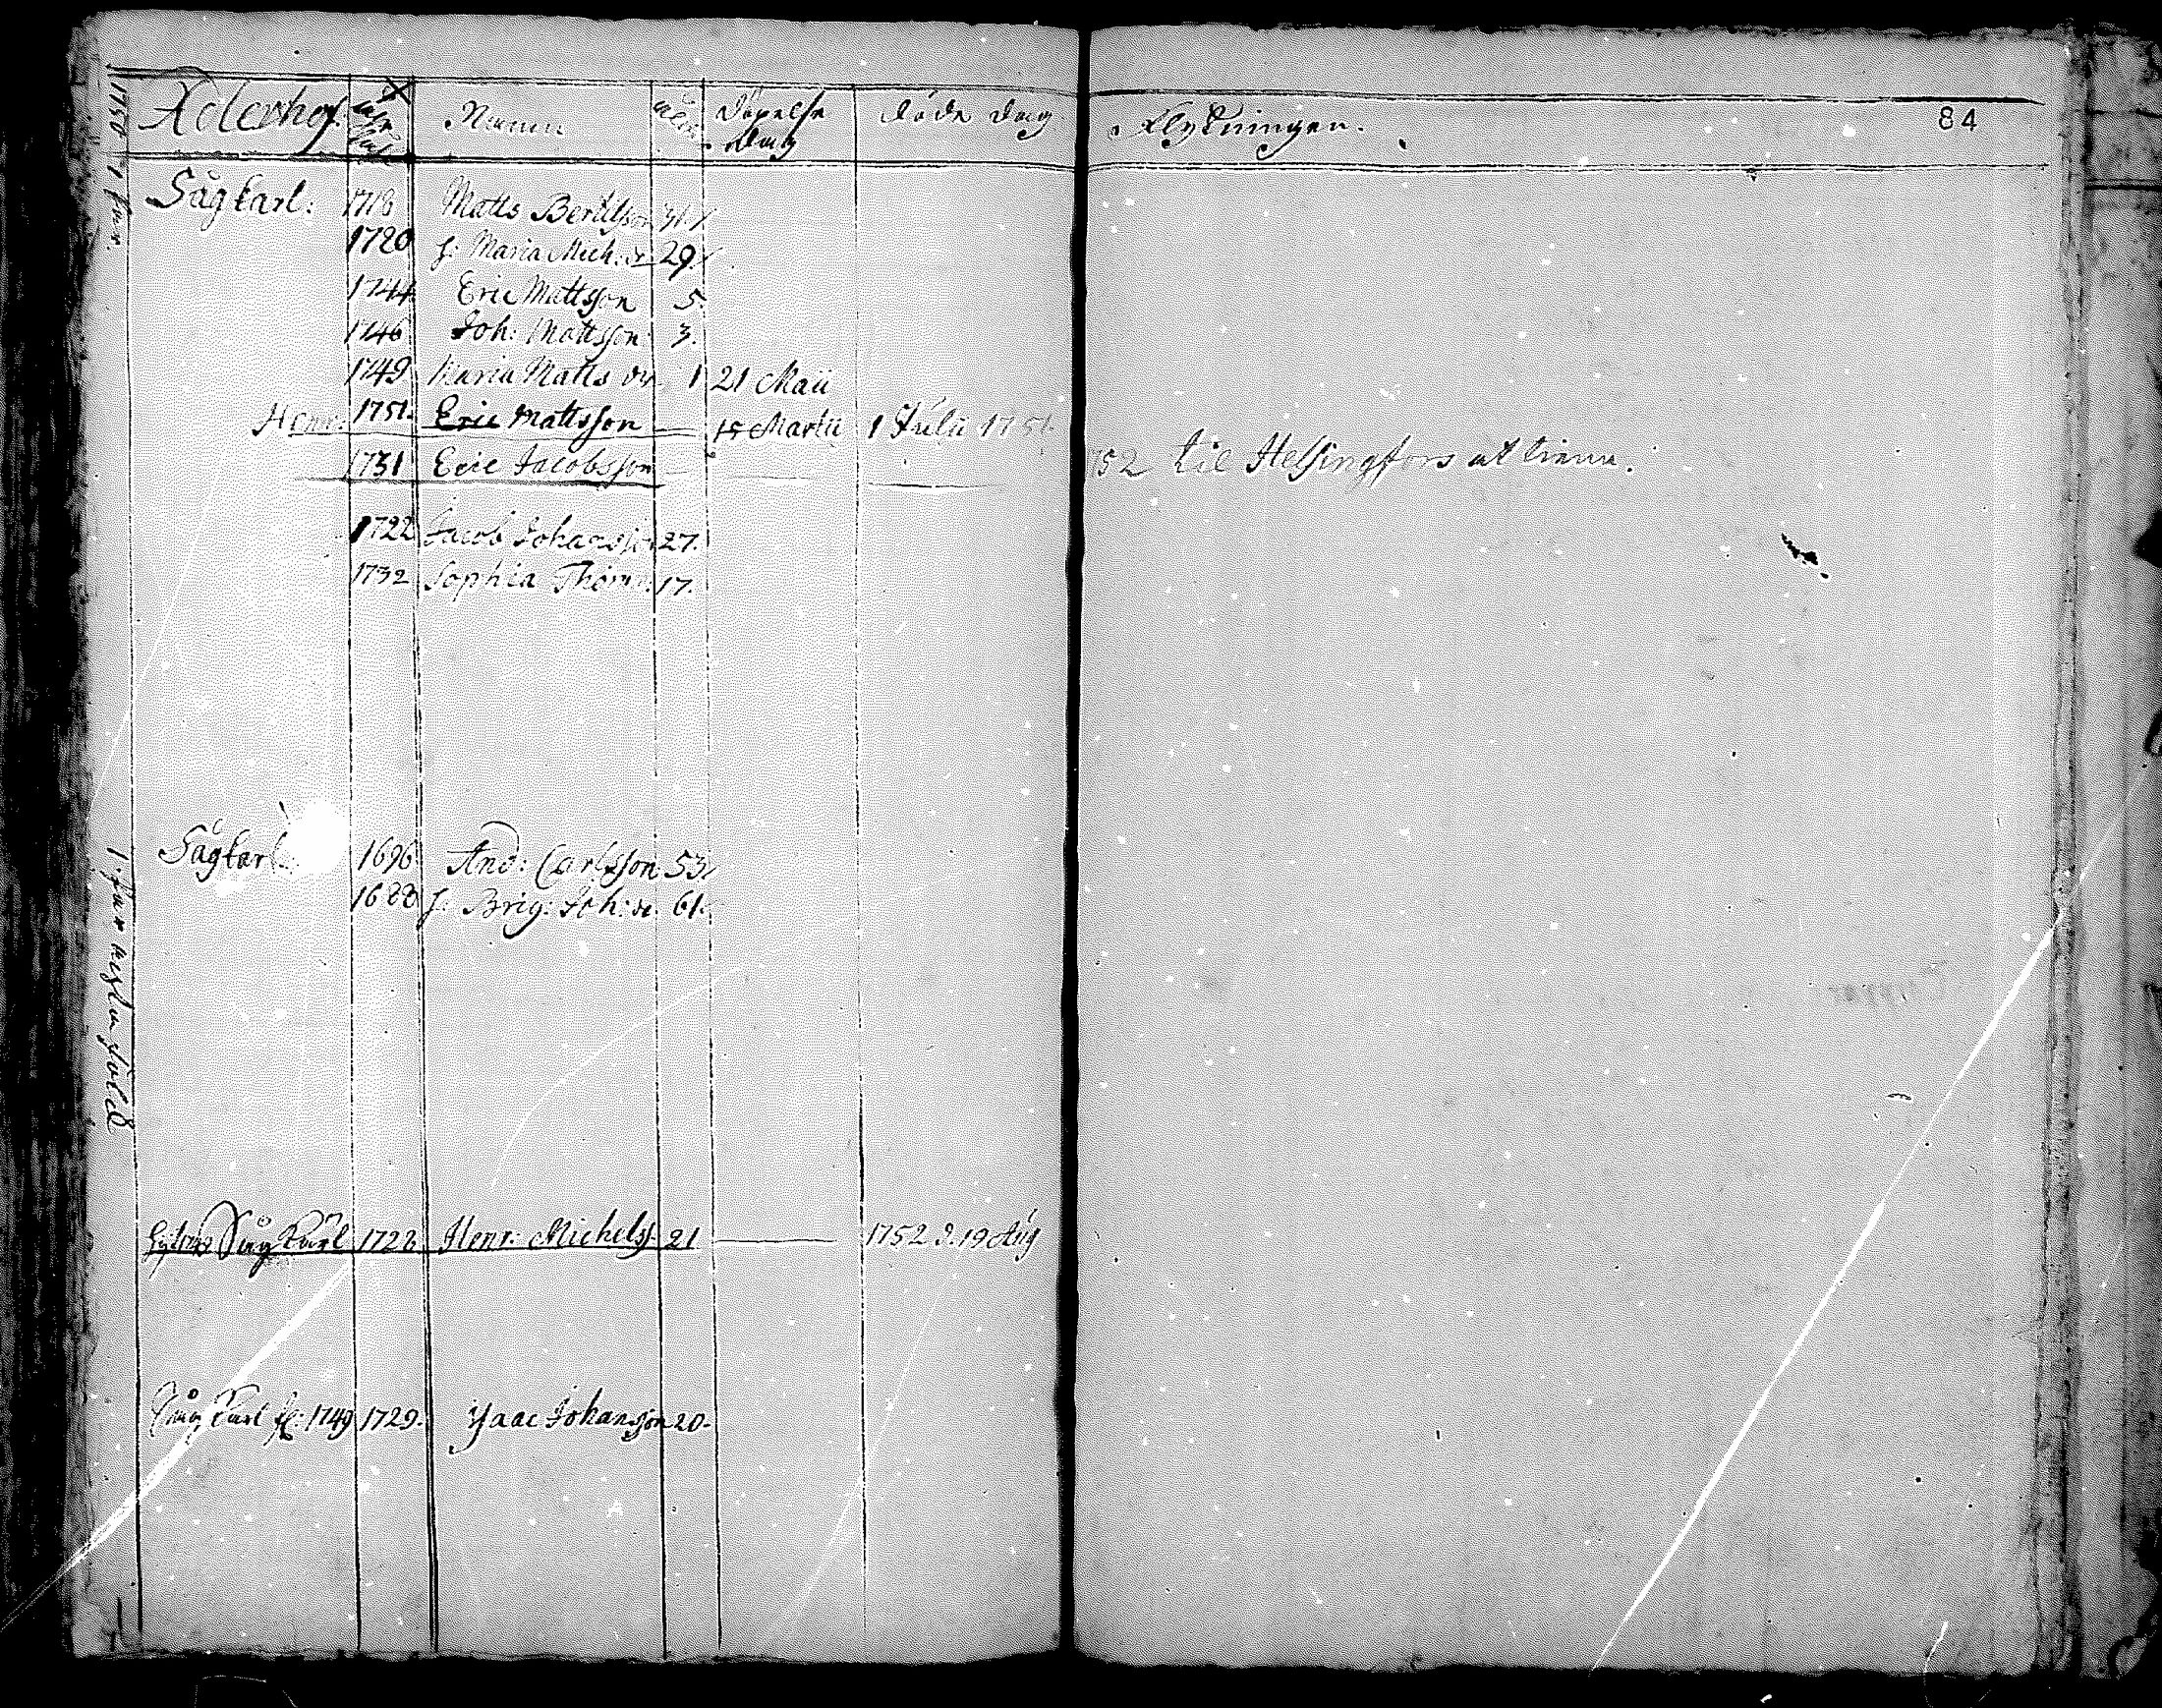 Namn Döpelse dag Döde dag Flyttningen. 84
Sågkarl: 1718 Matts Bertilsson 31.
1720 h: Maria Mich: dr 29.
1744 Eric Mattsson 5.
1746 Joh: Mattsson 3.
1749 Maria Matts dr 1 21 Maii
Henr: 1751. Eric Mattsson 15 Martii 1 Julii 1751.
1731 Eric Jacobsson 752 til Helsingfors at tiena.
1722 Jacob Johansson 27.
1732 Sophia Thom: 17.
Sågkarl 1696 And: Carlsson 53
1688 h: Brig: Joh: dr. 61.
Sågkarl 1728 Henr: Michelss. 21 1752 d. 19 Aug
Sågkarl fl: 1749 1729. Isaac Johansson 20.